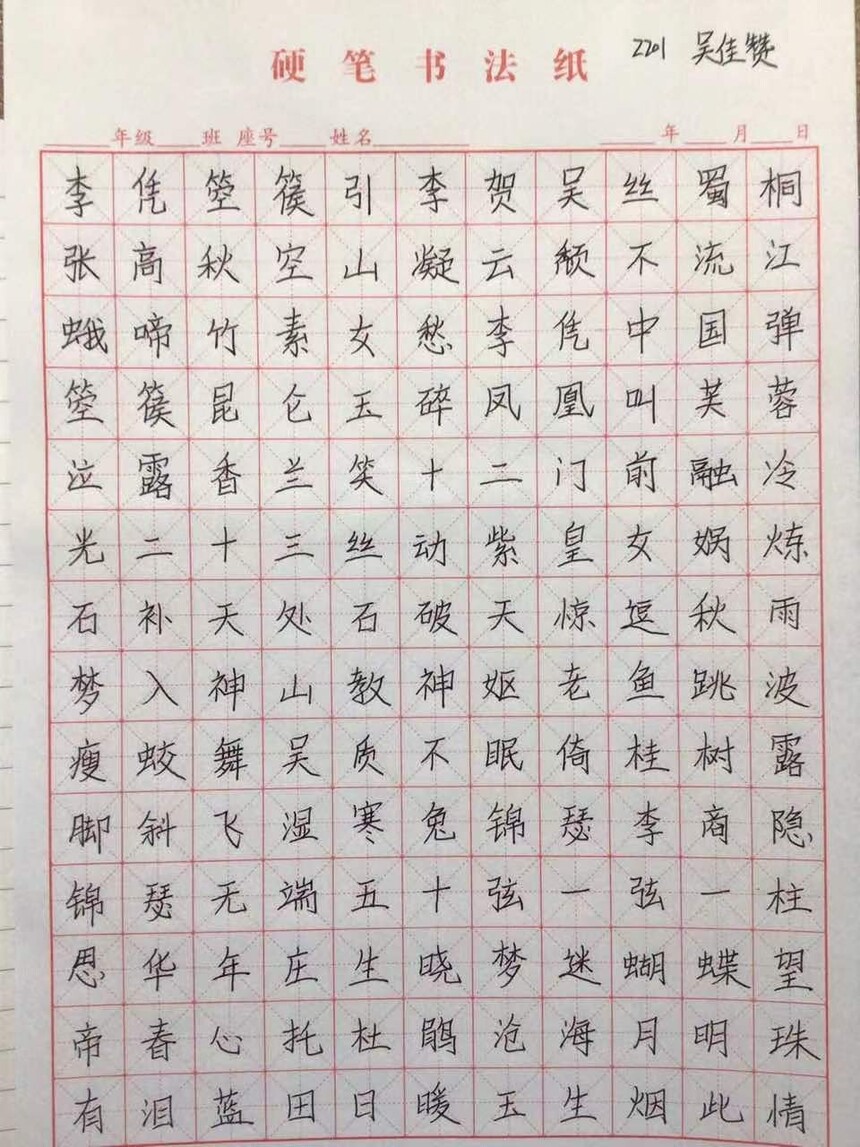 硬笔书法纸 2201 吴佳赞
年级 班 座号 姓名 年 月 日
李凭箜篌引李贺吴丝蜀桐
张高秋空山凝云颓不流江
蛾啼竹素女愁李凭中国弹
箜篌昆仑玉碎凤凰叫芙蓉
泣露香兰笑十二门前融冷
光二十三丝动紫皇女娲炼
石补天处石破天惊逗秋雨
梦入神山教神妪老鱼跳波
瘦蛟舞吴质不眠倚桂树露
脚斜飞湿寒兔锦瑟李商隐
锦瑟无端五十弦一弦一柱
思华年庄生晓梦迷蝴蝶望
帝春心托杜鹃沧海月明珠
有泪蓝田日暖玉生烟此情